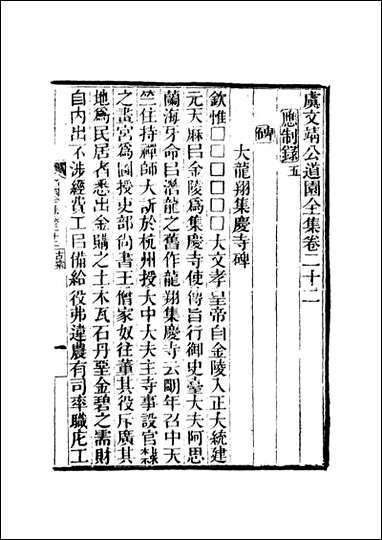 虞文靖公道園全集卷二十二
應制錄五
碑
大龍翔集慶寺碑
欽惟□□□□□□大文孝皇帝自金陵入正大統建
元天麻㠯金陵爲集慶寺使傳旨行御史臺大夫阿思
蘭海牙命㠯潛龍之舊作龍翔集慶寺云朙年召中天
竺住持禪師大訢於杭州授大中大夫主寺事設官隸
之畫宮爲圖授吏部尚書王僧家奴往董其役斥廣其
地爲民居者悉出金購之土木瓦石丹堊金碧之需財
自內出不涉經費工㠯備給役弗違農有司率職庀工
一